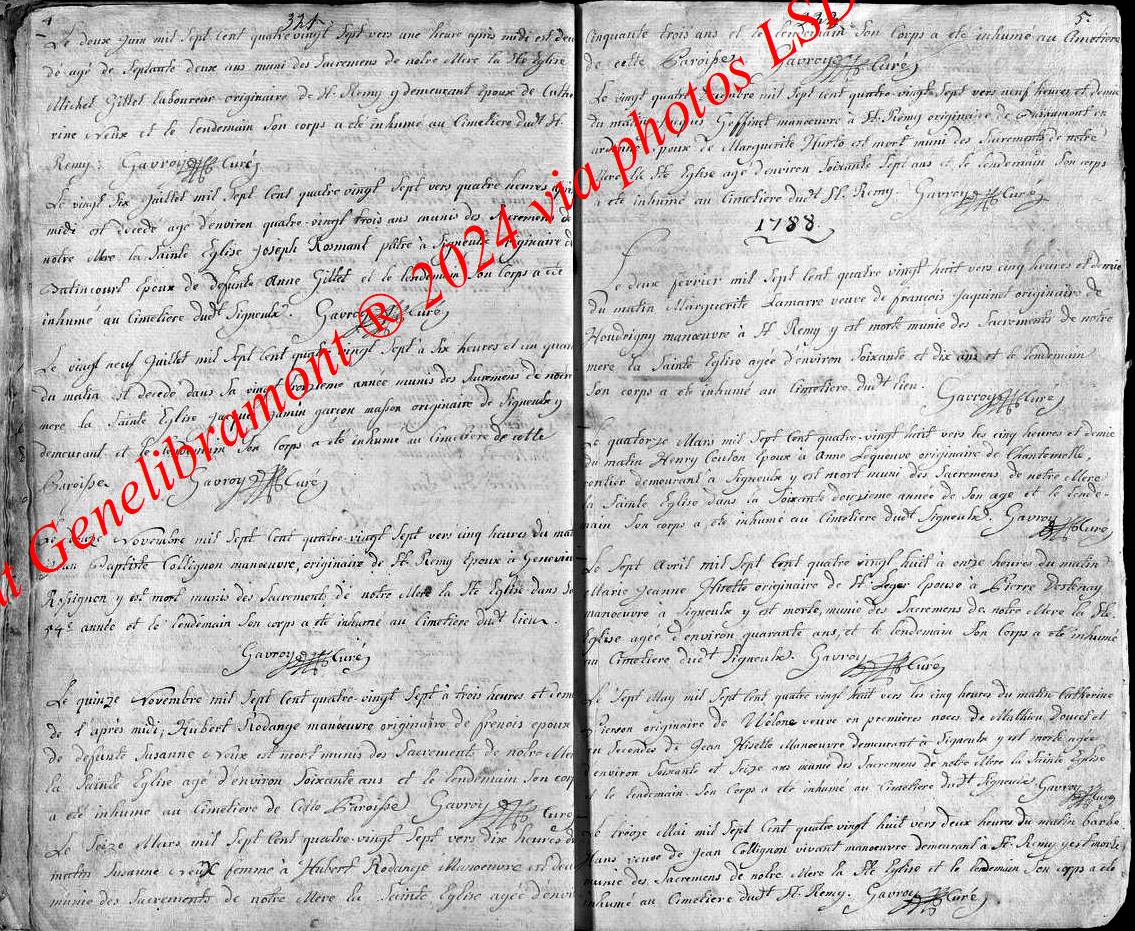 4
321
Le deux juin mil sept cent quatre vingt sept vers une heure après midi est
dé agé de septante deux ans muni des sacremens de notre Mere la Ste Eglise
Michel Gillet laboureur originaire de St. Remy y demeurant Epoux de Cathe
rine et le lendemain son corps a été inhumé au Cimetiere dudt St.
Remy. Gavroy Curé
Le vingt six juillet mil sept cent quatre vingt sept vers quatre heures
midi est décédé agé d'environ quatre-vingt trois ans munis des Sacremens de
notre Mere la Sainte Eglise Joseph Rosmant pâtre à Signeulx originaire de
Batincourt Epoux de defunte Anne Gillet et le lendemain son Corps a été
inhumé au Cimetiere dudt Signeulx. Gavroy Curé
Le vingt neuf juillet mil sept cent quatre vingt sept à six heures et un quart
du matin est décédé dans sa vingt troisieme année munis des Sacremens de notre
mere la Sainte Eglise jacques jamin garçon masson originaire de Signeulx y
demeurant et le lendemain son corps a été inhumé au Cimetiere de cette
Paroisse Gavroy Curé
Le Novembre mil sept cent quatre-vingt sept vers cinq heures du mat
Baptiste Collignon manœuvre, originaire de St. Remy Epoux à Genevieve
y est mort munis des Sacrements de notre Mere la Ste Eglise dans sa
54e année et le lendemain son corps a été inhumé au Cimetiere dudt lieu.
Gavroy Curé
Le quinze Novembre mil sept cent quatre-vingt sept à trois heures et demi
de l'après midi, Hubert Rodange manœuvre originaire de frenois epoux
de defunte Susanne est mort munis des Sacrements de notre Mere
la Sainte Eglise agé d'environ soixante ans et le lendemain son corp
a été inhumé au Cimetiere de Cette Paroisse Gavroy Curé
Le Seize Mars mil sept cent quatre-vingt sept vers dix heures du
matin Susanne femme à Hubert Rodange Manoeuvre est
munie des Sacrements de notre Mere la Sainte Eglise agée d'environ
5.
Cinquante trois ans et le lendemain son Corps a été inhumé au Cimetiere
de cette Paroisse Gavroy Curé
Le vingt quatre mil sept cent quatre-vingt sept vers neuf heures et demie
du matin manœuvre à St Remy originaire de
epoux de Marguerite est mort muni des Sacrements de notre
Mere la Ste Eglise agé d'environ soixante sept ans et le lendemain son corps
a été inhumé au Cimetiere dudt St. Remy Gavroy Curé
1788.
Le deux fevrier mil sept cent quatre vingt huit vers cinq heures et demie
du matin Marguerite Lamarre veuve de francois jaquinet originaire de
Houdrigny manœuvre à St Remy y est morte munie des Sacrements de notre
mere la Sainte Eglise agée d'environ soixante et dix ans et le lendemain
son corps a été inhumé au Cimetiere dudt lieu. Gavroy Curé
Le quatorze Mars mil sept cent quatre-vingt huit vers les cinq heures et demie
du matin Henry Coulon Epoux à Anne originaire de Chantemelle,
rentier demeurant à Signeulx y est mort muni des Sacremens de notre Mere
la Sainte Eglise dans la soixante douzieme année de son age et le lende-
main son corps a été inhumé au Cimetiere dudt Signeulx. Gavroy Curé
Le Sept Avril mil sept cent quatre vingt huit à onze heures du matin
Marie Jeanne Hisette originaire de St Leger Epouse à Pierre
manœuvre à Signeulx y est morte, munie des Sacremens de notre Mere la Ste
Eglise agée d'environ quarante ans, et le lendemain son Corps a été inhumé
au Cimetiere dudt Signeulx. Gavroy Curé
Le Sept May mil sept cent quatre vingt huit vers les cinq heures du matin Catherine
Pierson originaire de veuve en premieres noces de Mathieu Doucet et
en secondes de Jean Hisette Manoeuvre demeurant à Signeulx y est morte agée
d'environ soixante et seize ans munie des Sacremens de notre Mere la Sainte Eglise
et le lendemain son Corps a été inhumé au Cimetiere dudt Signeulx Gavroy Curé
Le treize Mai mil sept cent quatre vingt huit vers deux heures du matin Barbe
Hans veuve de Jean Collignon vivant manœuvre demeurant à St. Remy y est morte
munie des Sacremens de notre Mere la Ste Eglise et le lendemain son corps a été
inhumé au Cimetiere dudt St. Remy. Gavroy Curé
Genelibramont ® 2024 via photos LSD